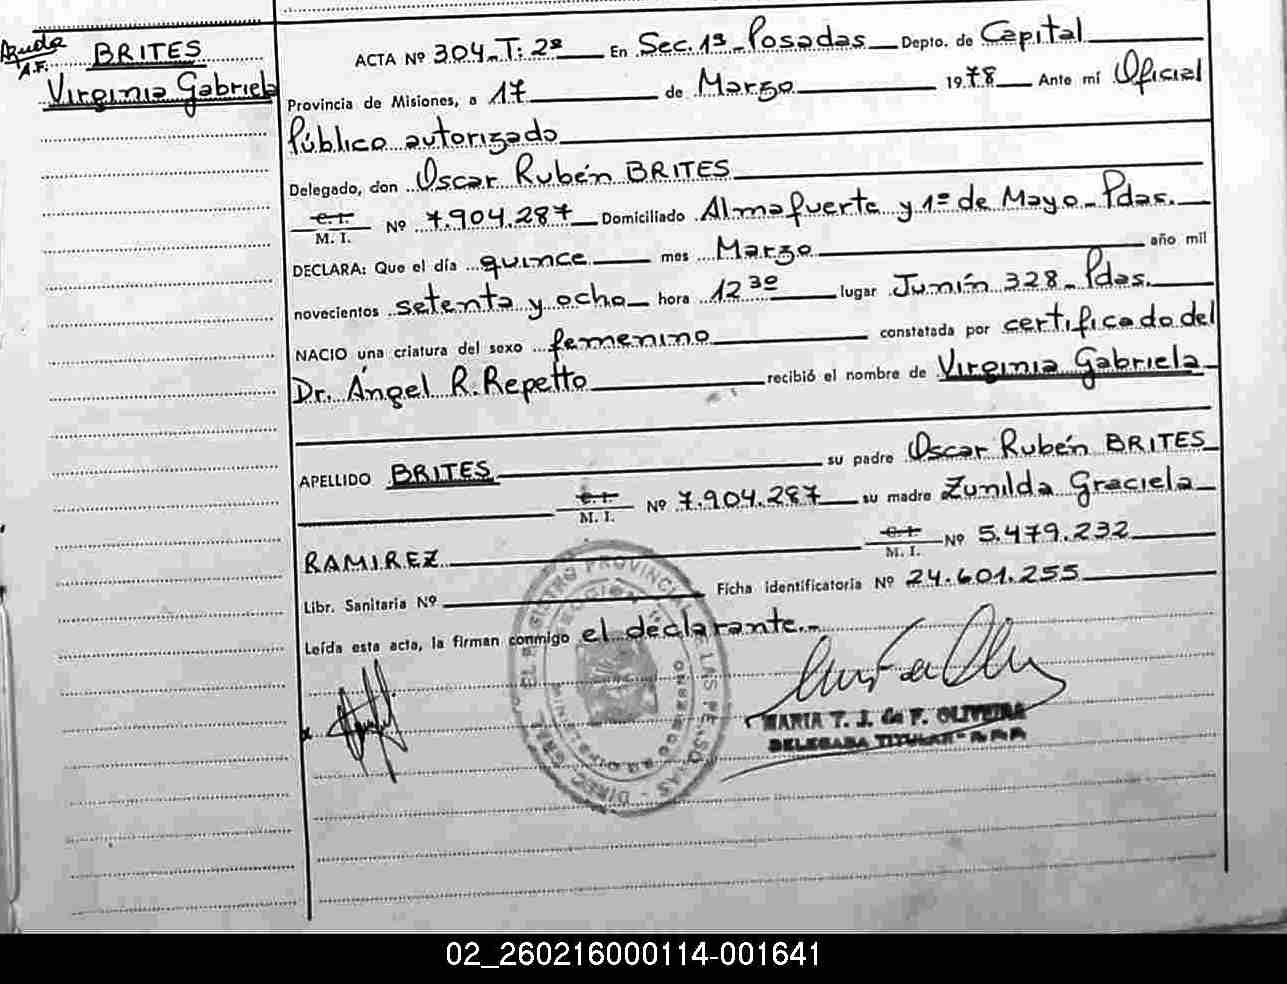 Ayuda
A.F.
BRITES
Virginia Gabriela
ACTA Nº 304_T: 2º En Sec. 1ª_Posadas Depto. de Capital
Provincia de Misiones, a 17 de Marzo 1978 Ante mí Oficial
Público autorizado
Delegado, don Oscar Rubén BRITES
C. I.
M. I. Nº 7.904.287 Domiciliado Almafuerte y 1º de Mayo_Pdas.
DECLARA: Que el día quince mes Marzo año mil
novecientos setenta y ocho hora 12 30 lugar Junín 328_Pdas.
NACIO una criatura del sexo femenino constatada por certificado del
Dr. Ángel R. Repetto recibió el nombre de Virginia Gabriela
APELLIDO BRITES su padre Oscar Rubén BRITES
C. I.
M. I. Nº 7.904.287 su madre Zunilda Graciela
RAMIREZ C. I.
M. I. Nº 5.479.232
Libr. Sanitaria Nº Ficha identificatoria Nº 24.601.255
Leída esta acta, la firman conmigo el declarante.-
MARIA T. J. de F. OLIVEIRA
DELEGADA TITULAR
02_260216000114-001641